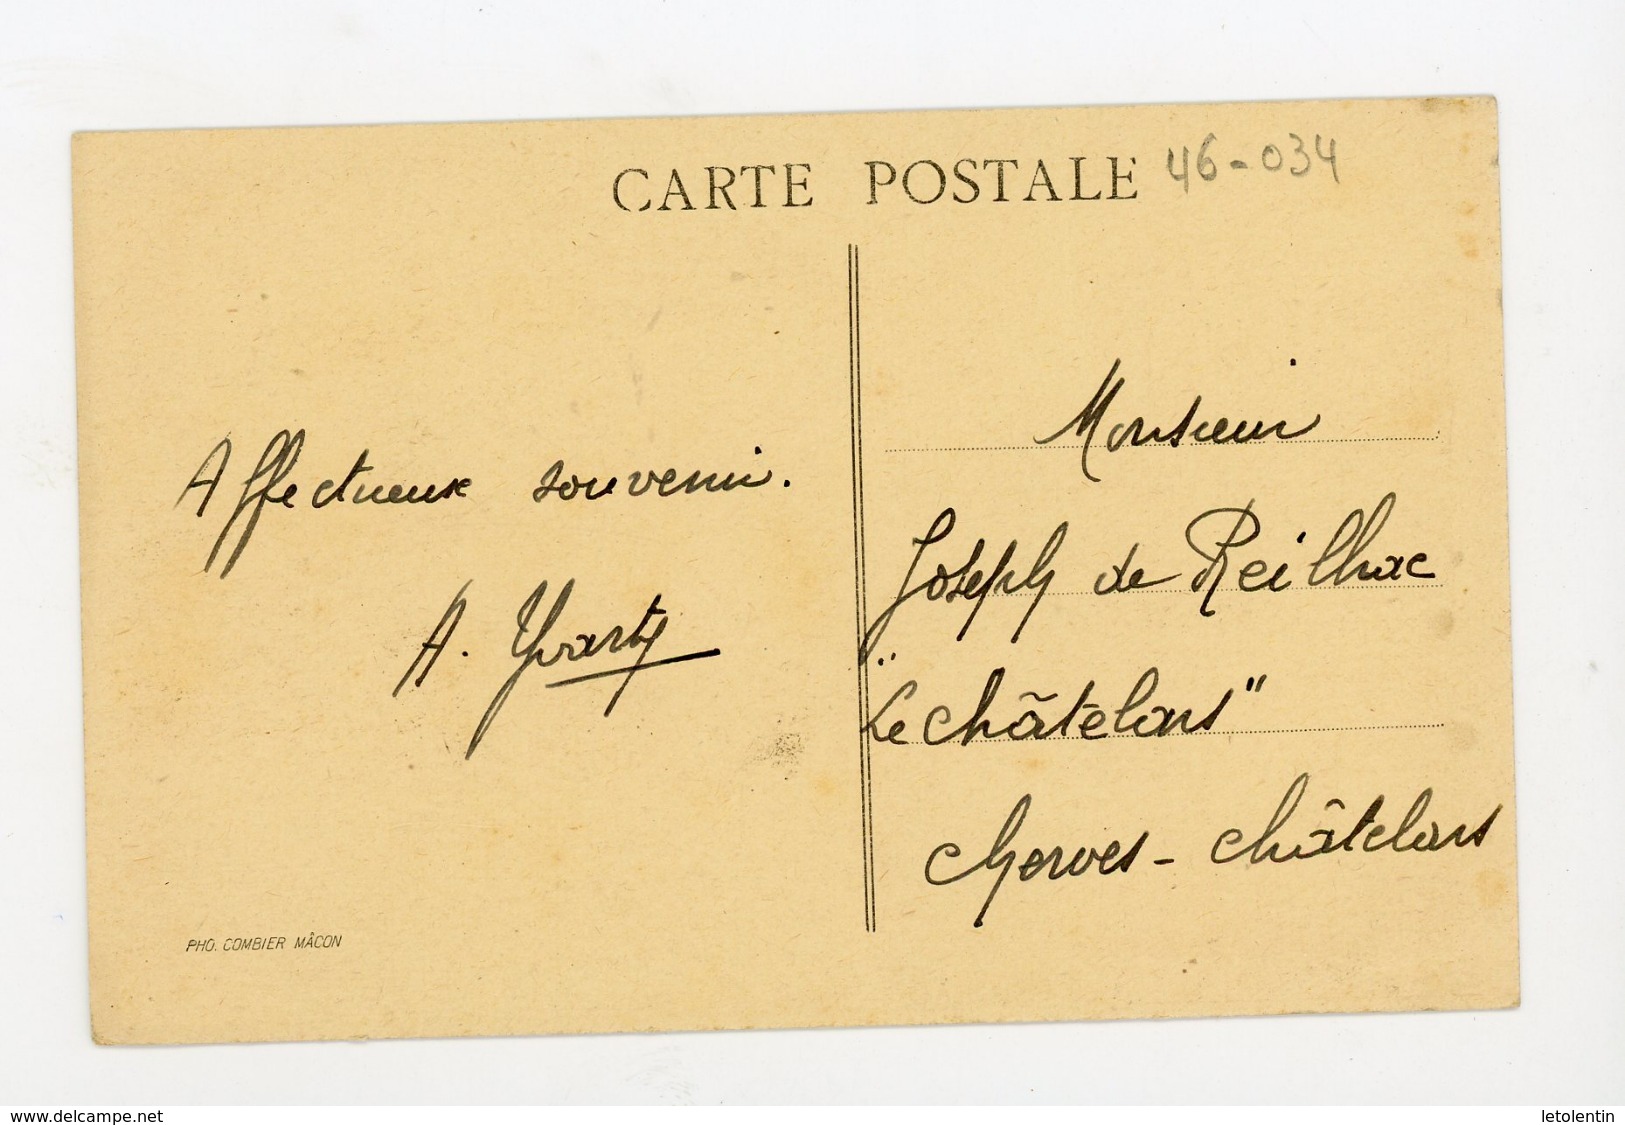 CARTE POSTALE
46-034
Affectueux souvenir.
A. Yvarty
Monsieur
Joseph de Reilhac
"Le châtelars"
Cherves - châtelars
PHO. COMBIER MÂCON
www.delcampe.net
letolentin